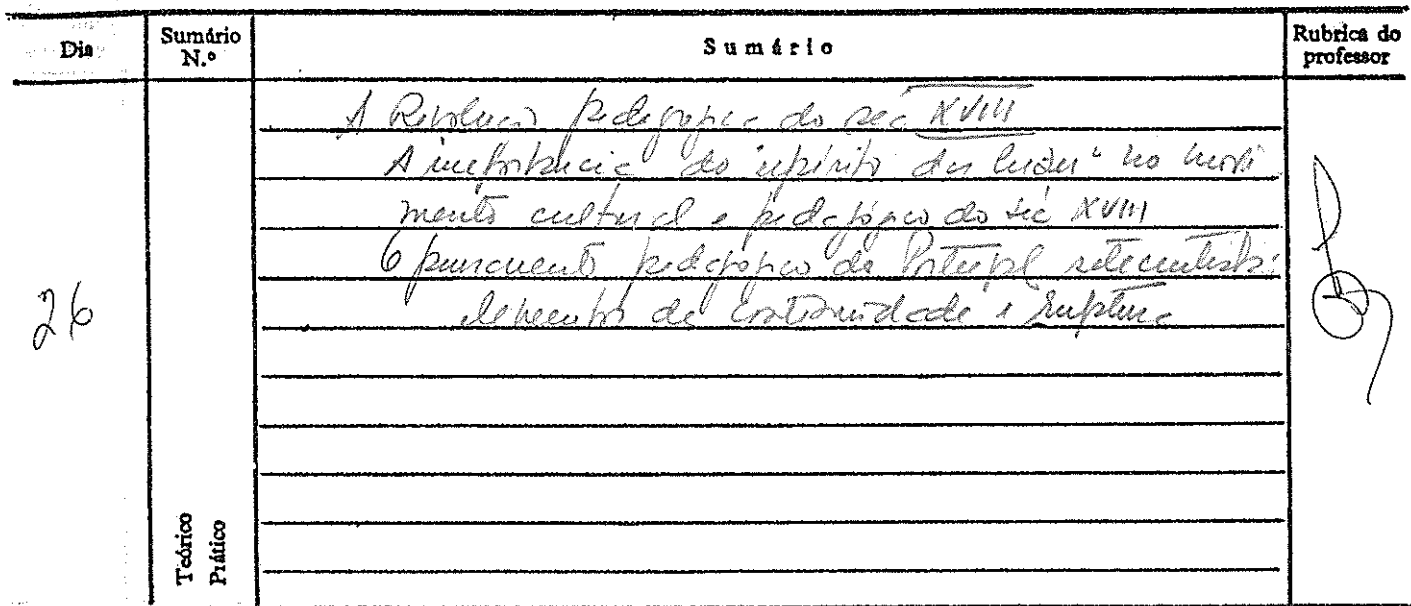 Dia
Sumário N.º
Sumário
Rubrica do professor
26
A Revolução pedagógica do séc XVIII
A importância do "espírito das luzes" no movi
mento cultural e pedagógico do séc XVIII
O pensamento pedagógico de Portugal setecentista:
elementos de continuidade e ruptura
Teórico
Prático